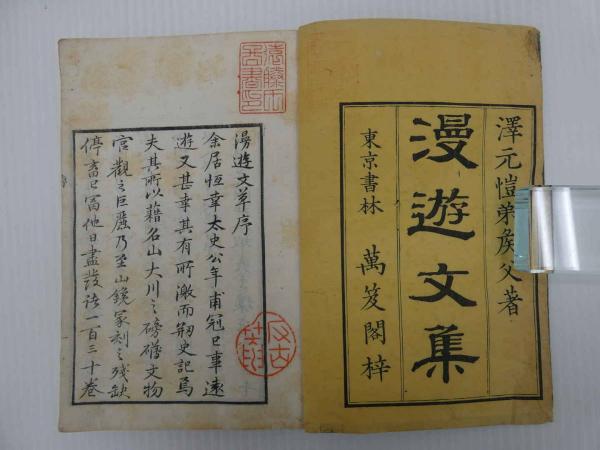 澤元愷弟矦父著
漫遊文集
東京書林 萬笈閣梓
漫遊文草序
余居恆幸太史公年甫冠已事遠
遊又甚幸其有所激而勒史記焉
夫其所以藉名山大川之磅礴文物
官觀之巨麗乃至山鑱冢刻之残缺
停畜已富他日盡發諸一百三十卷